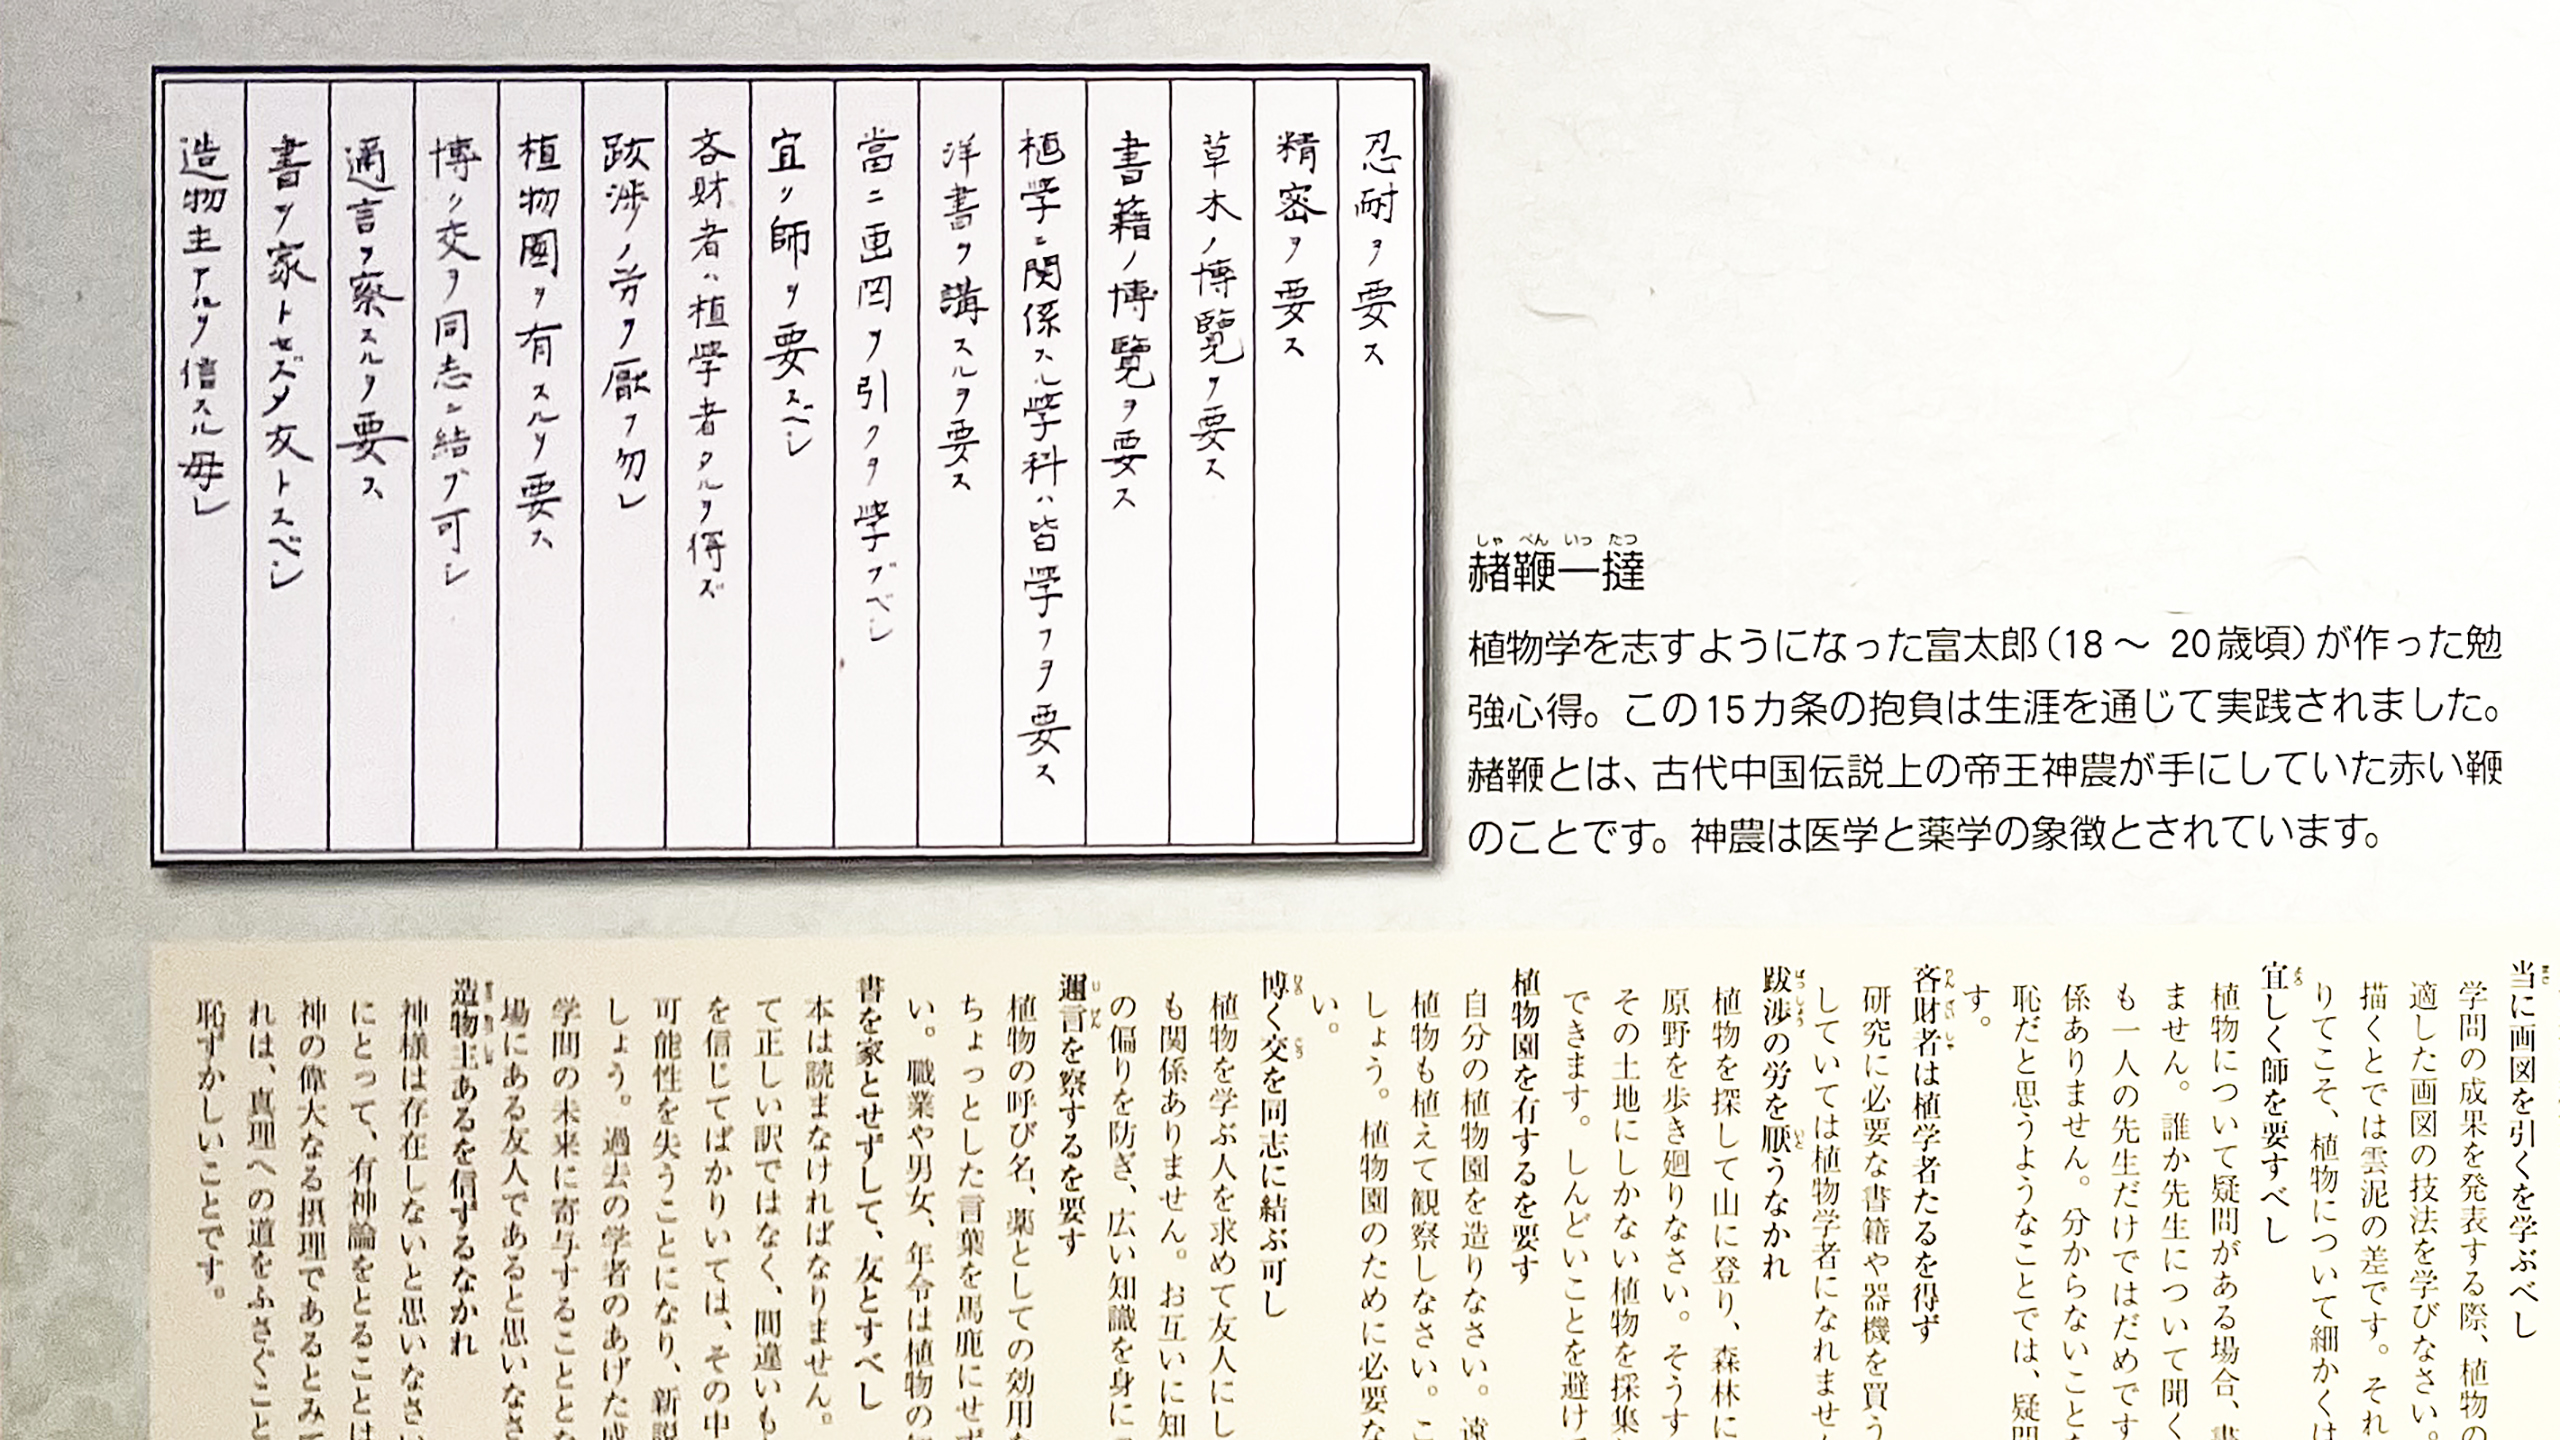 忍耐ヲ要ス
精密ヲ要ス
草木ノ博覧ヲ要ス
書籍ノ博覧ヲ要ス
植学ニ関係スル学科ハ皆学フヲ要ス
洋書ヲ講スルヲ要ス
當ニ画図ヲ引クヲ学ブベシ
宜ク師ヲ要スベシ
吝財者ハ植学者タルヲ得ズ
跋渉ノ労ヲ厭フ勿レ
植物園ヲ有スルヲ要ス
博ク交ヲ同志ニ結ブ可シ
邇言ヲ察スルヲ要ス
書ヲ家トセズメ友トスベシ
造物主アルヲ信スル毋レ
しゃ べん いっ たつ
赭鞭一撻
植物学を志すようになった富太郎(18～ 20歳頃)が作った勉
強心得。この15カ条の抱負は生涯を通じて実践されました。
赭鞭とは、古代中国伝説上の帝王神農が手にしていた赤い鞭
のことです。神農は医学と薬学の象徴とされています。
当に画図を引くを学ぶべし
学問の成果を発表する際、植物の
適した画図の技法を学びなさい。
描くとでは雲泥の差です。それ
りてこそ、植物について細かくは
宜しく師を要すべし
植物について疑問がある場合、書
ません。誰か先生について聞く
も一人の先生だけではだめです
係ありません。分からないことを
恥だと思うようなことでは、疑問
す。
吝財者は植学者たるを得ず
研究に必要な書籍や器機を買う
していては植物学者になれません
跋渉の労を厭うなかれ
植物を探して山に登り、森林に
原野を歩き廻りなさい。そうす
その土地にしかない植物を採集
できます。しんどいことを避けて
植物園を有するを要す
自分の植物園を造りなさい。遠
植物も植えて観察しなさい。こ
しょう。植物園のために必要な
い。
博く交を同志に結ぶ可し
植物を学ぶ人を求めて友人にし
も関係ありません。お互いに知
の偏りを防ぎ、広い知識を身に
邇言を察するを要す
植物の呼び名、薬としての効用な
ちょっとした言葉を馬鹿にせず
い。職業や男女、年令は植物の
書を家とせずして、友とすべし
本は読まなければなりません。
て正しい訳ではなく、間違いも
を信じてばかりいては、その中
可能性を失うことになり、新説
しょう。過去の学者のあげた成
学問の未来に寄与することとな
場にある友人であると思いなさ
造物主あるを信ずるなかれ
神様は存在しないと思いなさい
にとって、有神論をとることは
神の偉大なる摂理であるとみて
れは、真理への道をふさぐこと
恥ずかしいことです。